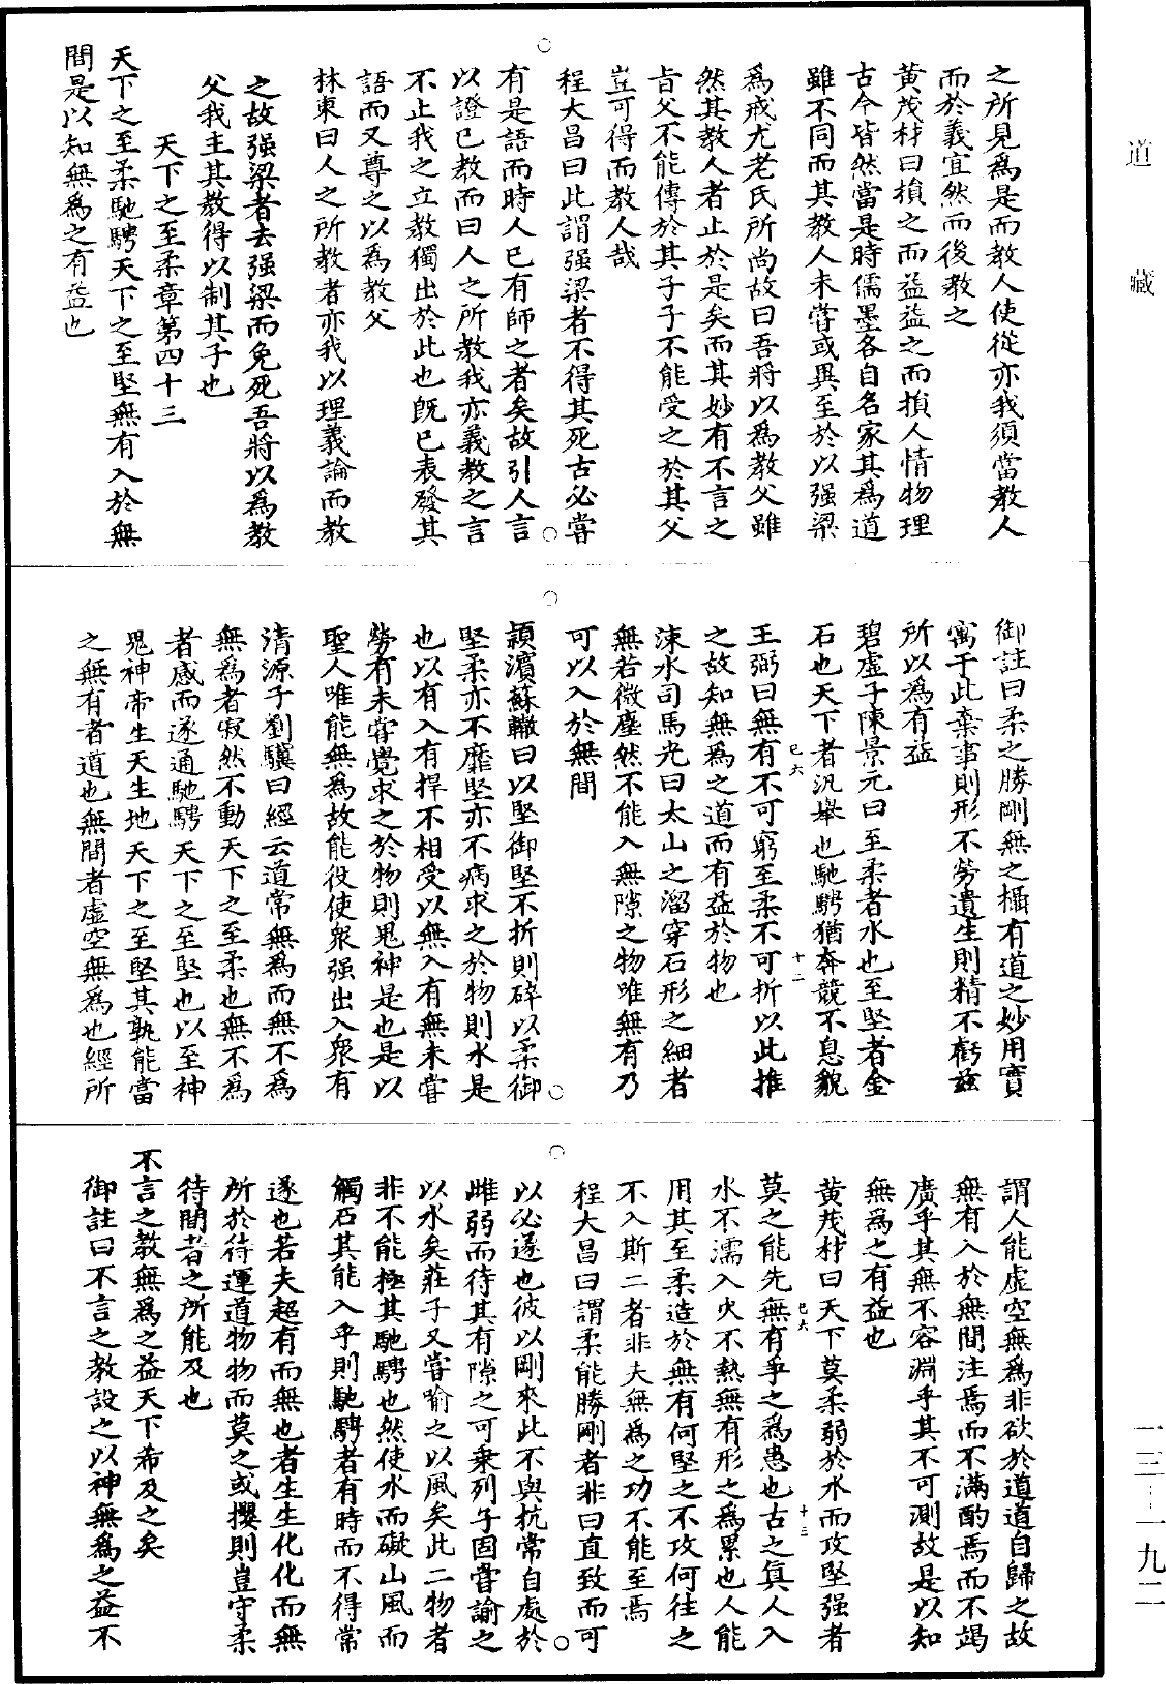 道藏
之所見爲是而教人使從亦我須當教人
而於義宜然而後教之
黄茂材曰損之而益益之而損人情物理
古今皆然當是時儒墨各自名家其爲道
雖不同而其教人未嘗或異至於以强梁
爲戒尤老氏所尚故曰吾將以爲教父雖
然其教人者止於是矣而其妙有不言之
旨父不能傳於其子子不能受之於其父
豈可得而教人哉
程大昌曰此謂强梁者不得其死古必嘗
有是語而時人已有師之者矣故引人言
以證已教而曰人之所教我亦義教之言
不止我之立教獨出於此也既已表發其
語而又尊之以爲教父
林東曰人之所教者亦我以理義論而教
之故强梁者去强梁而免死吾將以爲教
父我主其教得以制其子也
天下之至柔章第四十三
天下之至柔馳騁天下之至堅無有入於無
間是以知無爲之有益也
御註曰柔之勝剛無之攝有道之妙用實
寓于此棄事則形不勞遺生則精不虧茲
所以爲有益
碧虛子陳景元曰至柔者水也至堅者金
石也天下者汎舉也馳騁猶奔競不息貌
已六
十二
王弼曰無有不可窮至柔不可折以此推
之故知無爲之道而有益於物也
涑水司馬光曰太山之溜穿石形之細者
無若微塵然不能入無隙之物唯無有乃
可以入於無間
頴濵蘇轍曰以堅御堅不折則碎以柔御
堅柔亦不靡堅亦不病求之於物則水是
也以有入有捍不相受以無入有無未嘗
勞有未嘗覺求之於物則鬼神是也是以
聖人唯能無爲故能役使衆强出入衆有
清源子劉驥曰經云道常無爲而無不爲
無爲者寂然不動天下之至柔也無不爲
者感而遂通馳騁天下之至堅也以至神
鬼神帝生天生地天下之至堅其孰能當
之無有者道也無間者虛空無爲也經所
謂人能虛空無爲非欲於道道自歸之故
無有入於無間注焉而不滿酌焉而不竭
廣乎其無不容淵乎其不可測故是以知
無爲之有益也
黄茂材曰天下莫柔弱於水而攻堅强者
已六
十三
莫之能先無有乎之爲患也古之真人入
水不濡入火不熱無有形之爲累也人能
用其至柔造於無有何堅之不攻何往之
不入斯二者非夫無爲之功不能至焉
程大昌曰謂柔能勝剛者非曰直致而可
以必遂也彼以剛來此不與抗常自處於
雌弱而待其有隙之可乗列子固嘗諭之
以水矣莊子又嘗喻之以風矣此二物者
非不能極其馳騁也然使水而礙山風而
觸石其能入乎則馳騁者有時而不得常
遂也若夫超有而無也者生生化化而無
所於待運道物物而莫之或攖則豈守柔
待間者之所能及也
不言之教無爲之益天下希及之矣
御註曰不言之教設之以神無爲之益不
一三—一九二